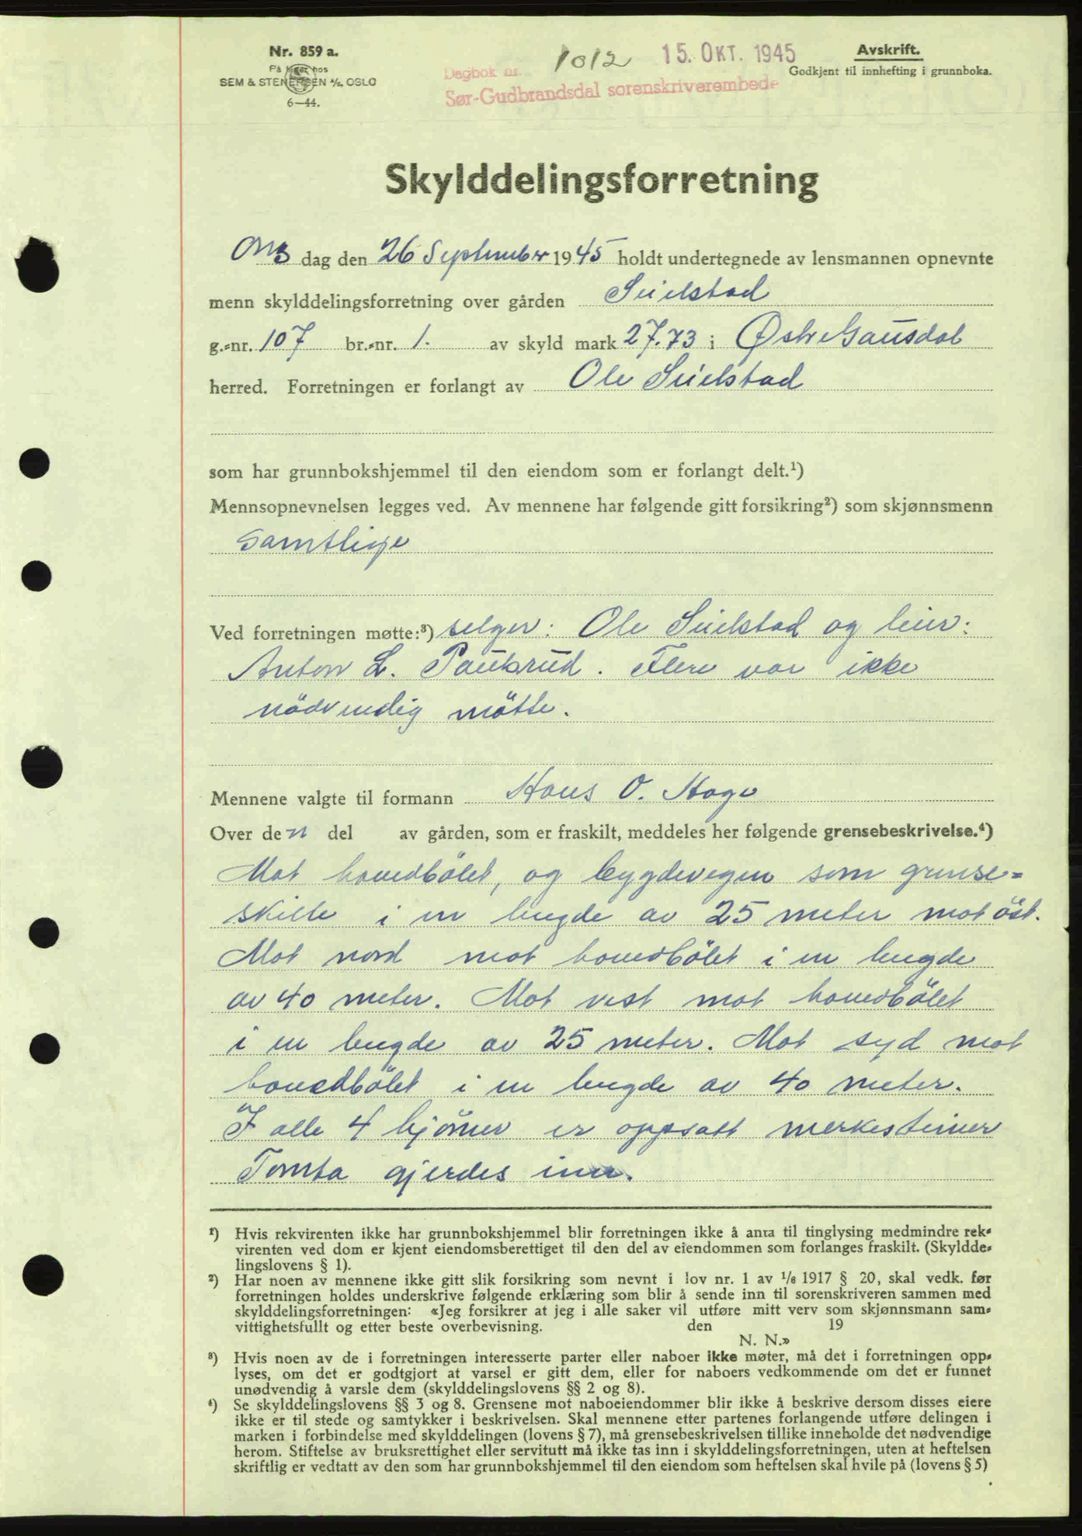 Nr. 859 a.
På lager hos
SEM & STENERSEN A/S, OSLO
6—44.
Dagbok nr. 1012 15. OKT. 1945
Sør-Gudbrandsdal sorenskriverembede
Avskrift.
Godkjent til innhefting i grunnboka.
Skylddelingsforretning
Ons dag den 26 September 1945 holdt undertegnede av lensmannen opnevnte
menn skylddelingsforretning over gården Seielstad
g.-nr. 107 br.-nr. 1. av skyld mark 27.73 i Østre Gausdal
herred. Forretningen er forlangt av Ole Seielstad
som har grunnbokshjemmel til den eiendom som er forlangt delt.¹)
Mennsopnevnelsen legges ved. Av mennene har følgende gitt forsikring²) som skjønnsmenn
samtlige
Ved forretningen møtte:³) selger: Ole Seielstad og leier:
Anton L. Paulsrud. Flere var ikke
nödvendig mötte.
Mennene valgte til formann Hans O. Hage
Over den del av gården, som er fraskilt, meddeles her følgende grensebeskrivelse.⁴)
Mot hovedbölet, og bygdevegen som grense=
skille i en lengde av 25 meter mot öst.
Mot nord mot hovedbölet i en lengde
av 40 meter. Mot vest mot hovedbölet
i en lengde av 25 meter. Mot syd mot
hovedbölet i en lengde av 40 meter.
I alle 4 hjörner er oppsatt merkesteiner
Tomta gjerdes inn.
¹) Hvis rekvirenten ikke har grunnbokshjemmel blir forretningen ikke å anta til tinglysing medmindre rek-
virenten ved dom er kjent eiendomsberettiget til den del av eiendommen som forlanges fraskilt. (Skyldde-
lingslovens § 1).
²) Har noen av mennene ikke gitt slik forsikring som nevnt i lov nr. 1 av 1/6 1917 § 20, skal vedk. før
forretningen holdes underskrive følgende erklæring som blir å sende inn til sorenskriveren sammen med
skylddelingsforretningen: «Jeg forsikrer at jeg i alle saker vil utføre mitt verv som skjønnsmann sam-
vittighetsfullt og etter beste overbevisning. den 19
N. N.»
³) Hvis noen av de i forretningen interesserte parter eller naboer ikke møter, må det i forretningen opp-
lyses, om det er godtgjort at varsel er gitt dem, eller for naboers vedkommende om det er funnet
unødvendig å varsle dem (skylddelingslovens §§ 2 og 8).
⁴) Se skylddelingslovens §§ 3 og 8. Grensene mot naboeiendommer blir ikke å beskrive dersom disses eiere
ikke er til stede og samtykker i beskrivelsen. Skal mennene etter partenes forlangende utføre delingen i
marken i forbindelse med skylddelingen (lovens § 7), må grensebeskrivelsen tillike inneholde det nødvendige
herom. Stiftelse av bruksrettighet eller servitutt må ikke tas inn i skylddelingsforretningen, uten at heftelsen
skriftlig er vedtatt av den som har grunnbokshjemmel til den eiendom som heftelsen skal hvile på (lovens § 5)